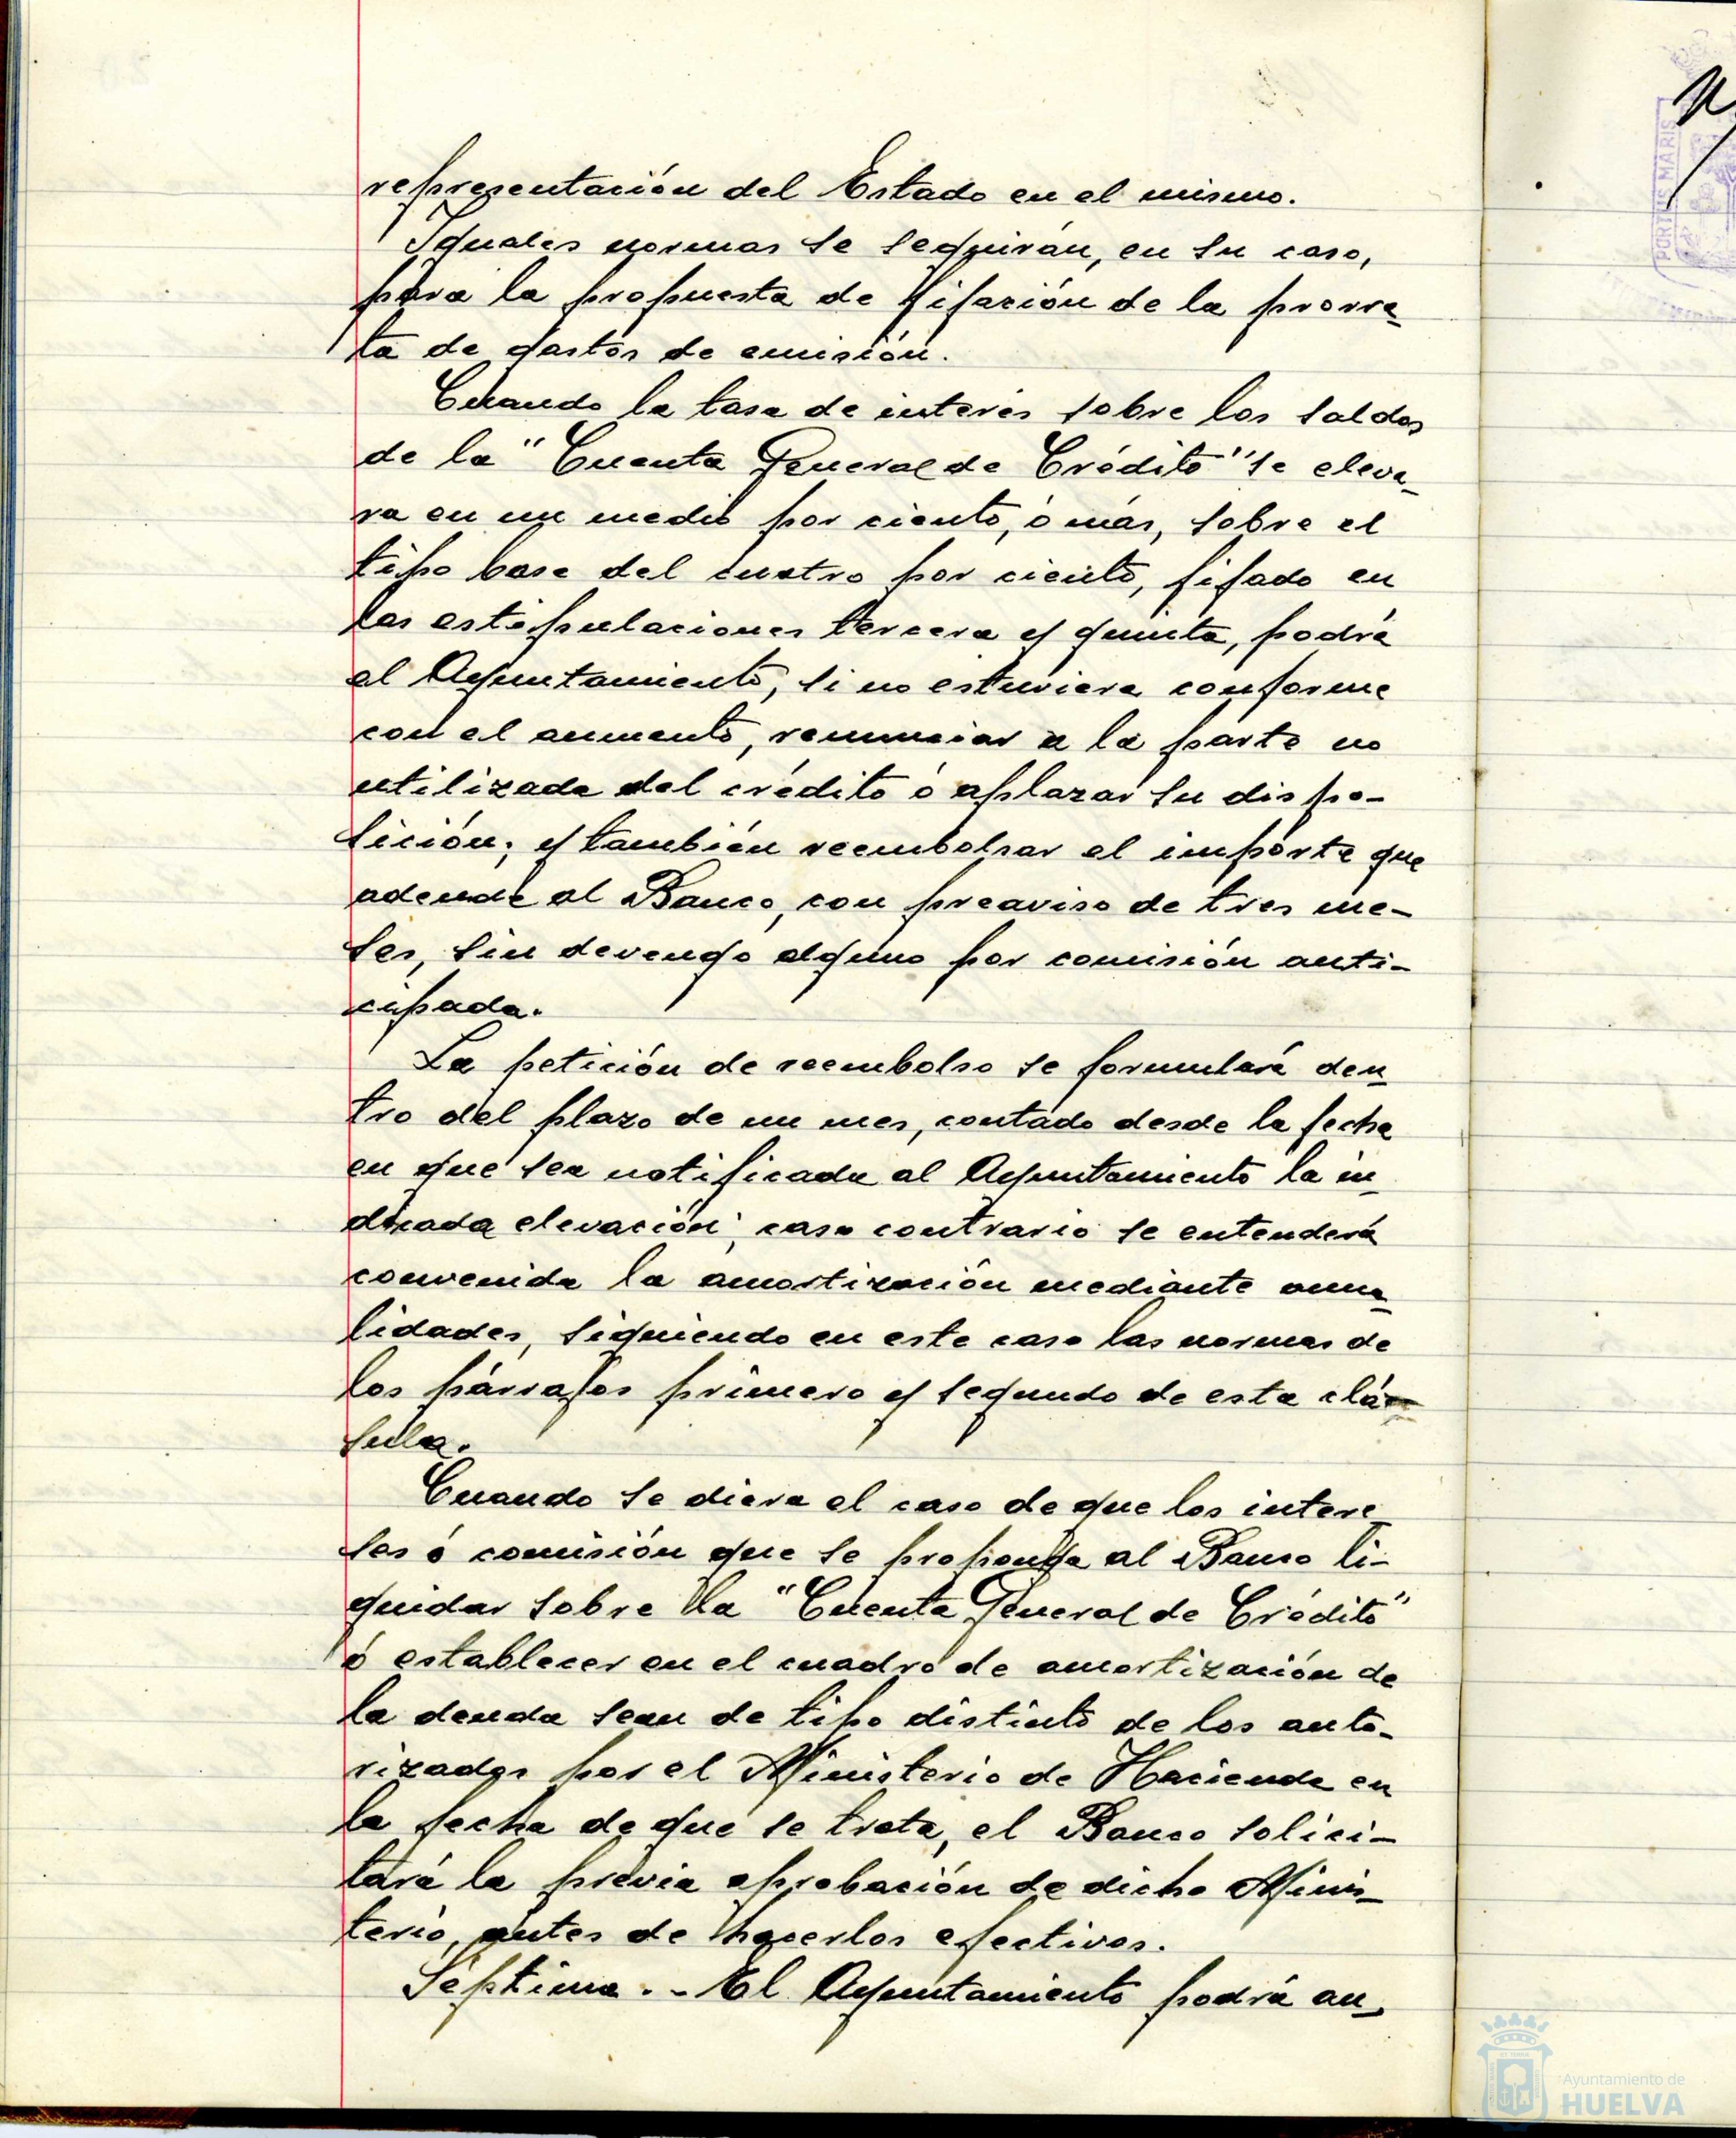 representación del Estado en el mismo.
Iguales normas se seguirán, en su caso,
para la propuesta de fijación de la prorra-
ta de gastos de emisión.
Cuando la tasa de interés sobre los saldos
de la "Cuenta General de Crédito" se eleva-
ra en un medio por ciento, ó más, sobre el
tipo base del cuatro por ciento, fijado en
las estipulaciones tercera y quinta, podrá
el Ayuntamiento, si no estuviera conforme
con el aumento, renunciar a la parte no
utilizada del crédito ó aplazar su dispo-
sición; y también reembolsar el importe que
adeude al Banco, con preaviso de tres me-
ses, sin devengo alguno por comisión anti-
cipada.
La petición de reembolso se formulará den-
tro del plazo de un mes, contado desde la fecha
en que sea notificada al Ayuntamiento la in-
dicada elevación; caso contrario se entenderá
convenida la amortización mediante anua-
lidades, siguiendo en este caso las normas de
los párrafos primero y segundo de esta cláu-
sula.
Cuando se diera el caso de que los intere-
ses ó comisión que se proponga al Banco li-
quidar sobre la "Cuenta General de Crédito"
ó establecer en el cuadro de amortización de
la deuda sean de tipo distinto de los auto-
rizados por el Ministerio de Hacienda en
la fecha de que se trata, el Banco solici-
tará la previa aprobación de dicho Minis-
terio, antes de hacerlos efectivos.
Septima.- El Ayuntamiento podrá an-
PORTUS MARIS
Ayuntamiento de
HUELVA